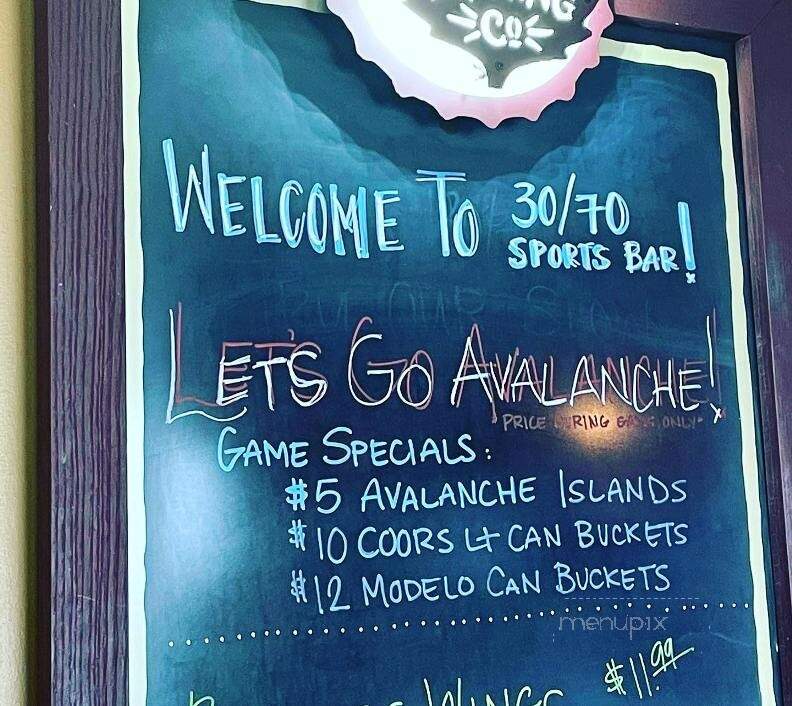 Co
WELCOME TO 30/70
SPORTS BAR!
LET'S GO AVALANCHE!
PRICE DURING GAME ONLY
GAME SPECIALS:
$5 AVALANCHE ISLANDS
$10 COORS LT CAN BUCKETS
$12 MODELO CAN BUCKETS
menupix
WINGS $11.99